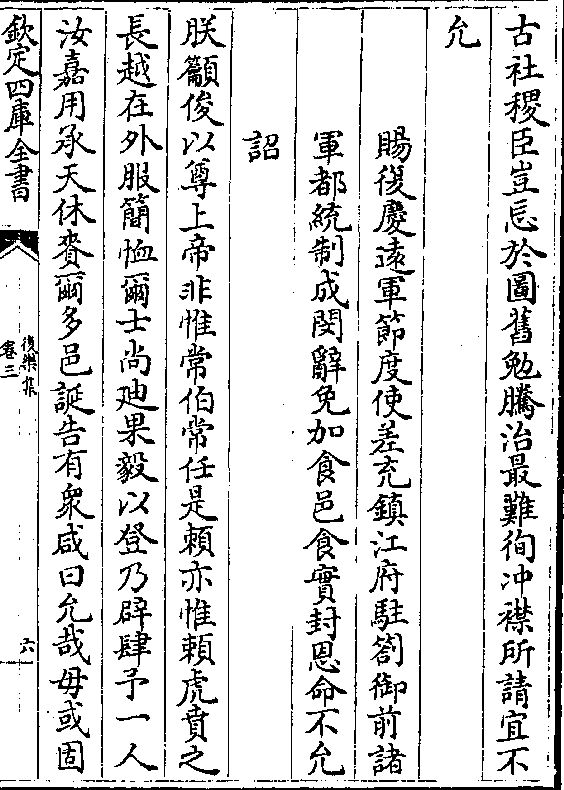 古社稷臣豈忘於圖舊勉騰治最難徇冲襟所請宜不
允
賜復慶遠軍節度使差充鎮江府駐劄御前諸
軍都統制成閔辭免加食邑食實封恩命不允
詔
朕籲俊以尊上帝非惟常伯常任是賴亦惟賴虎賁之
長越在外服簡恤爾士尚廸果毅以登乃辟肆予一人
汝嘉用承天休賚爾多邑誕告有衆咸曰允哉毋或固
欽定四庫全書
後樂集
卷三
六